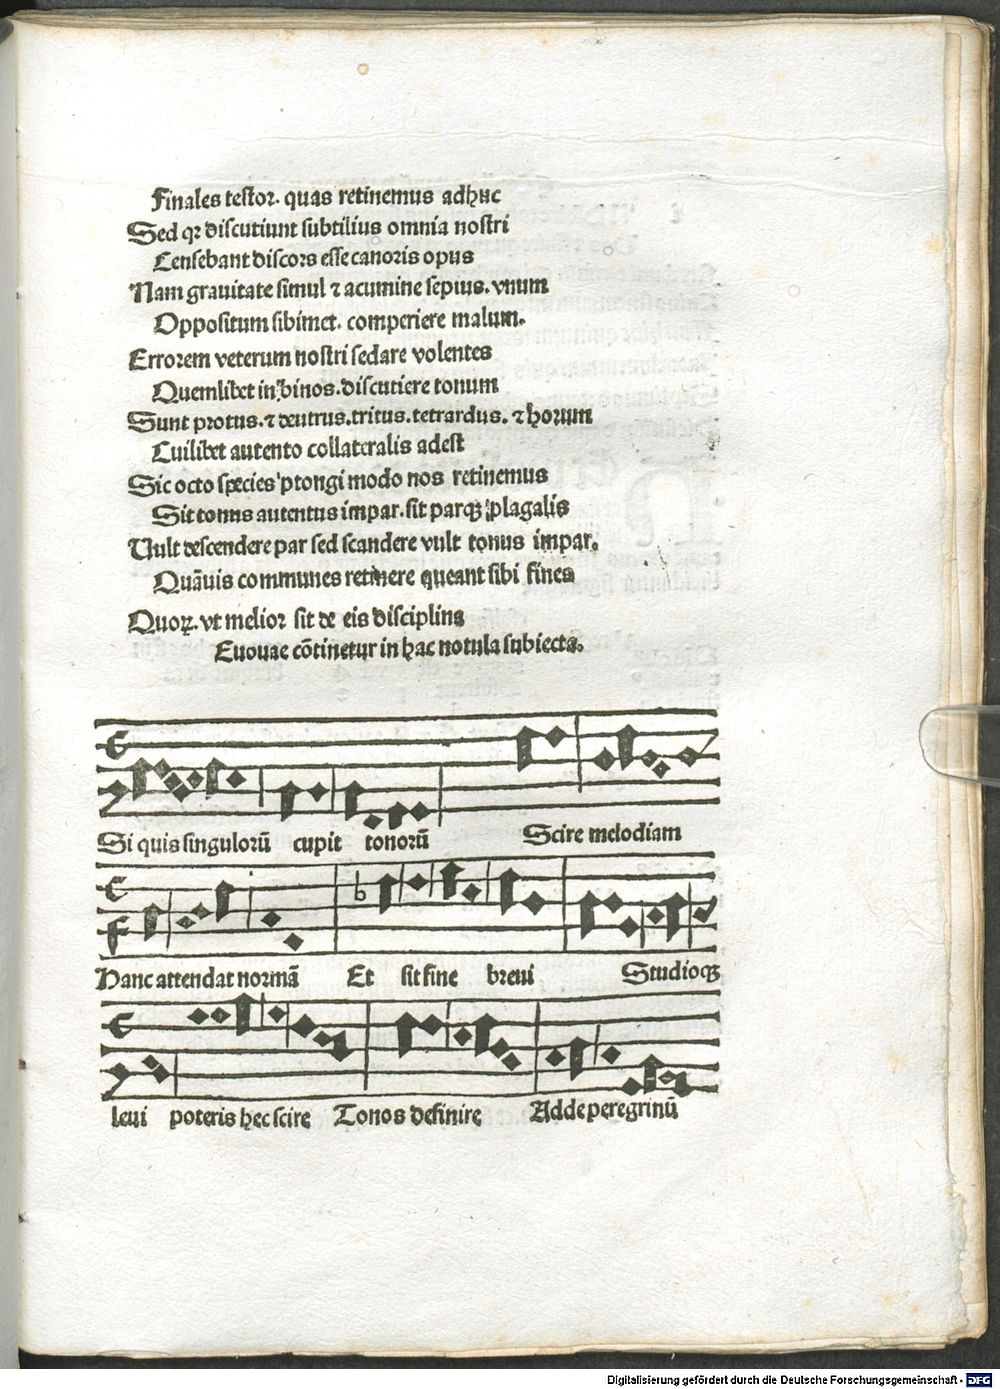 Finales testor. quas retinemus adhuc
Sed qꝛ discutiunt subtilius omnia nostri
Censebant discors esse canoris opus
Nam grauitate simul ⁊ acumine sepius. vnum
Oppositum sibimet. comperiere malum.
Errorem veterum nostri sedare volentes
Quemlibet in binos. discutiere tonum
Sunt protus. ⁊ deutrus. tritus. tetrardus. ⁊ horum
Cuilibet autento collateralis adest
Sic octo species ptongi modo nos retinemus
Sit tonus autentus impar. sit parqꝫ plagalis
Vult descendere par sed scandere vult tonus impar.
Quāuis communes retinere queant sibi fines
Quoꝝ. vt melior sit de eis disciplina
Euouae cōtinetur in hac notula subiecta.
Si quis singuloꝛū cupit tonoꝛū Scire melodiam
Hanc attendat normā Et sit fine breui Studioqꝫ
leui poteris hec scire Tonos definire Adde peregrinū
Digitalisierung gefördert durch die Deutsche Forschungsgemeinschaft - DFG